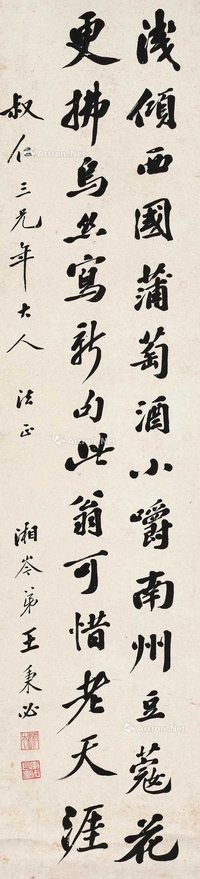 淺傾西國蒲萄酒小嚼南州豆蔻花
更拂烏絲寫新句此翁可惜老天涯
叔仁三兄年大人 法正
湘岑弟王秉必